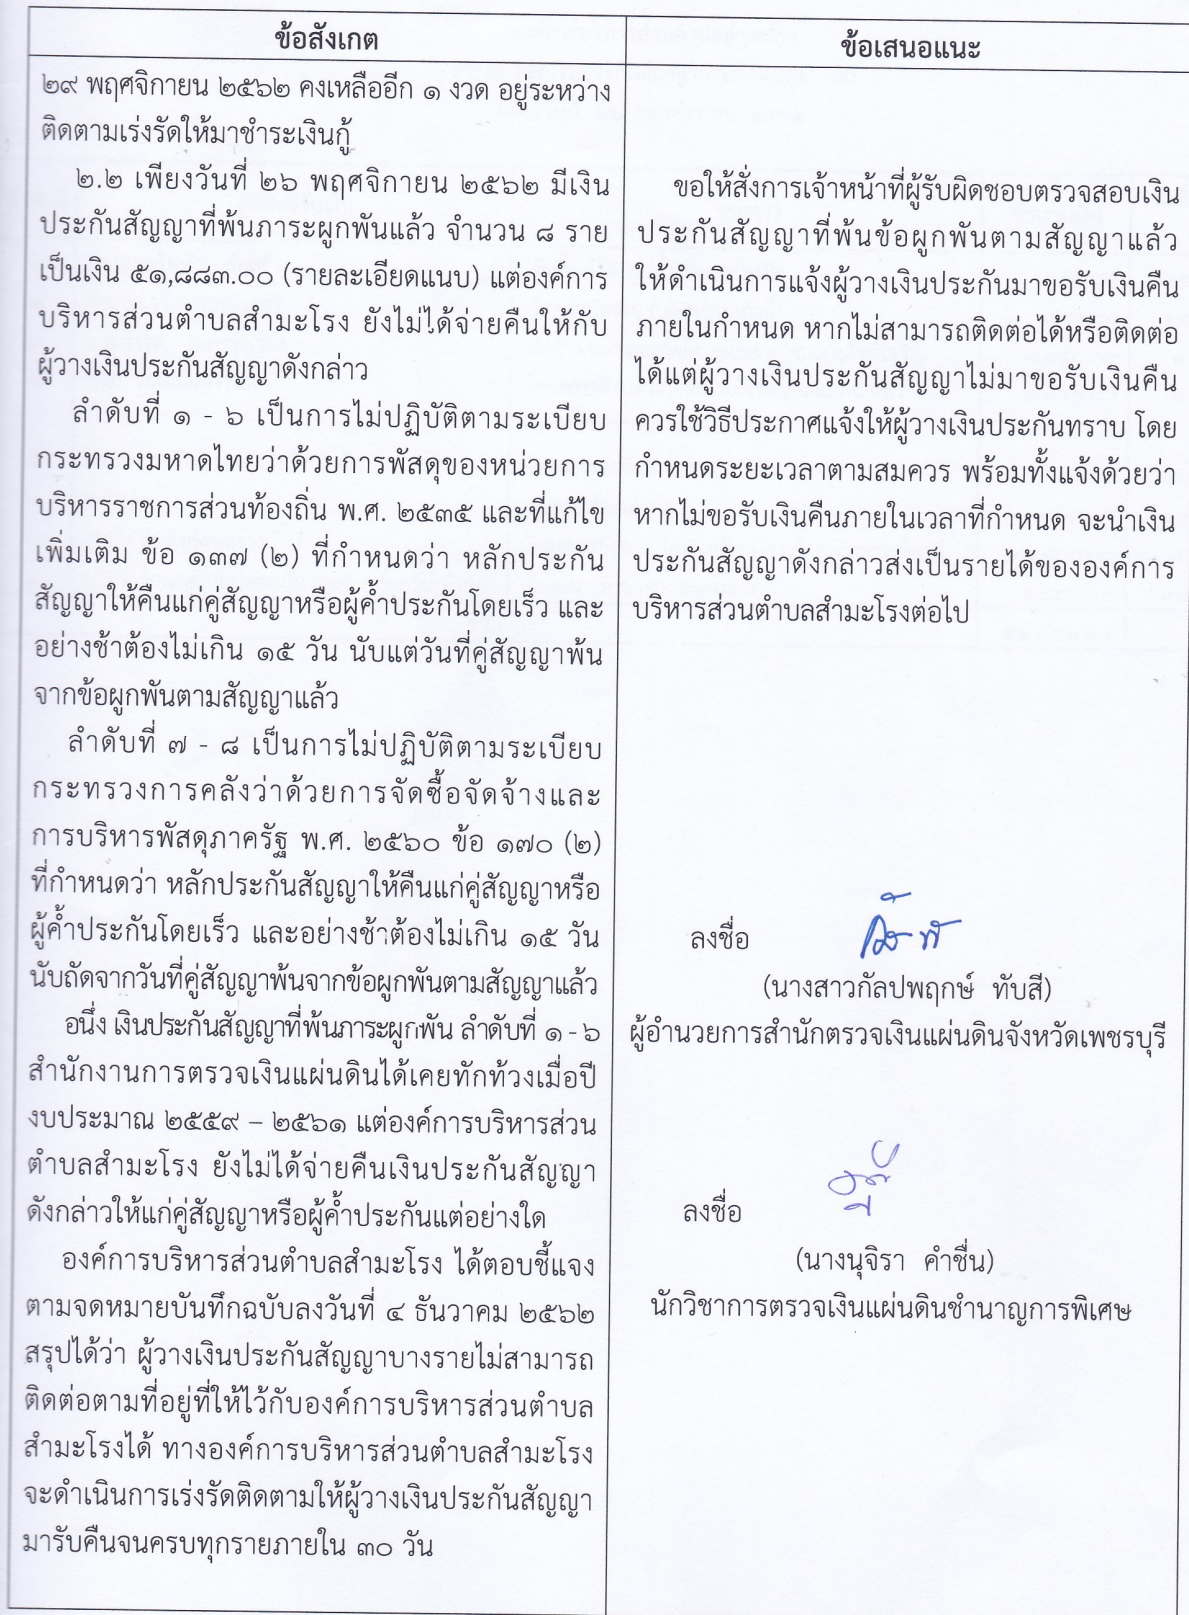 ข้อสังเกต
๒๙ พฤศจิกายน ๒๕๖๒ คงเหลืออีก ๑ งวด อยู่ระหว่าง
ติดตามเร่งรัดให้มาชำระเงินกู้
๒.๒ เพียงวันที่ ๒๖ พฤศจิกายน ๒๕๖๒ มีเงิน
ประกันสัญญาที่พ้นภาระผูกพันแล้ว จำนวน ๘ ราย
เป็นเงิน ๕๑,๘๘๓.๐๐ (รายละเอียดแนบ) แต่องค์การ
บริหารส่วนตำบลสำมะโรง ยังไม่ได้จ่ายคืนให้กับ
ผู้วางเงินประกันสัญญาดังกล่าว
ลำดับที่ ๑ - ๖ เป็นการไม่ปฏิบัติตามระเบียบ
กระทรวงมหาดไทยว่าด้วยการพัสดุของหน่วยการ
บริหารราชการส่วนท้องถิ่น พ.ศ. ๒๕๓๕ และที่แก้ไข
เพิ่มเติม ข้อ ๑๓๗ (๒) ที่กำหนดว่า หลักประกัน
สัญญาให้คืนแก่คู่สัญญาหรือผู้ค้ำประกันโดยเร็ว และ
อย่างช้าต้องไม่เกิน ๑๕ วัน นับแต่วันที่คู่สัญญาพ้น
จากข้อผูกพันตามสัญญาแล้ว
ลำดับที่ ๗ - ๘ เป็นการไม่ปฏิบัติตามระเบียบ
กระทรวงการคลังว่าด้วยการจัดซื้อจัดจ้างและ
การบริหารพัสดุภาครัฐ พ.ศ. ๒๕๖๐ ข้อ ๑๗๐ (๒)
ที่กำหนดว่า หลักประกันสัญญาให้คืนแก่คู่สัญญาหรือ
ผู้ค้ำประกันโดยเร็ว และอย่างช้าต้องไม่เกิน ๑๕ วัน
นับถัดจากวันที่คู่สัญญาพ้นจากข้อผูกพันตามสัญญาแล้ว
อนึ่ง เงินประกันสัญญาที่พ้นภาระผูกพัน ลำดับที่ ๑ - ๖
สำนักงานการตรวจเงินแผ่นดินได้เคยทักท้วงเมื่อปี
งบประมาณ ๒๕๕๙ – ๒๕๖๑ แต่องค์การบริหารส่วน
ตำบลสำมะโรง ยังไม่ได้จ่ายคืนเงินประกันสัญญา
ดังกล่าวให้แก่คู่สัญญาหรือผู้ค้ำประกันแต่อย่างใด
องค์การบริหารส่วนตำบลสำมะโรง ได้ตอบชี้แจง
ตามจดหมายบันทึกฉบับลงวันที่ ๔ ธันวาคม ๒๕๖๒
สรุปได้ว่า ผู้วางเงินประกันสัญญาบางรายไม่สามารถ
ติดต่อตามที่อยู่ที่ให้ไว้กับองค์การบริหารส่วนตำบล
สำมะโรงได้ ทางองค์การบริหารส่วนตำบลสำมะโรง
จะดำเนินการเร่งรัดติดตามให้ผู้วางเงินประกันสัญญา
มารับคืนจนครบทุกรายภายใน ๓๐ วัน
ข้อเสนอแนะ
ขอให้สั่งการเจ้าหน้าที่ผู้รับผิดชอบตรวจสอบเงิน
ประกันสัญญาที่พ้นข้อผูกพันตามสัญญาแล้ว
ให้ดำเนินการแจ้งผู้วางเงินประกันมาขอรับเงินคืน
ภายในกำหนด หากไม่สามารถติดต่อได้หรือติดต่อ
ได้แต่ผู้วางเงินประกันสัญญาไม่มาขอรับเงินคืน
ควรใช้วิธีประกาศแจ้งให้ผู้วางเงินประกันทราบ โดย
กำหนดระยะเวลาตามสมควร พร้อมทั้งแจ้งด้วยว่า
หากไม่ขอรับเงินคืนภายในเวลาที่กำหนด จะนำเงิน
ประกันสัญญาดังกล่าวส่งเป็นรายได้ขององค์การ
บริหารส่วนตำบลสำมะโรงต่อไป
ลงชื่อ
(นางสาวกัลปพฤกษ์ ทับสี)
ผู้อำนวยการสำนักตรวจเงินแผ่นดินจังหวัดเพชรบุรี
ลงชื่อ
(นางนุจิรา คำชื่น)
นักวิชาการตรวจเงินแผ่นดินชำนาญการพิเศษ